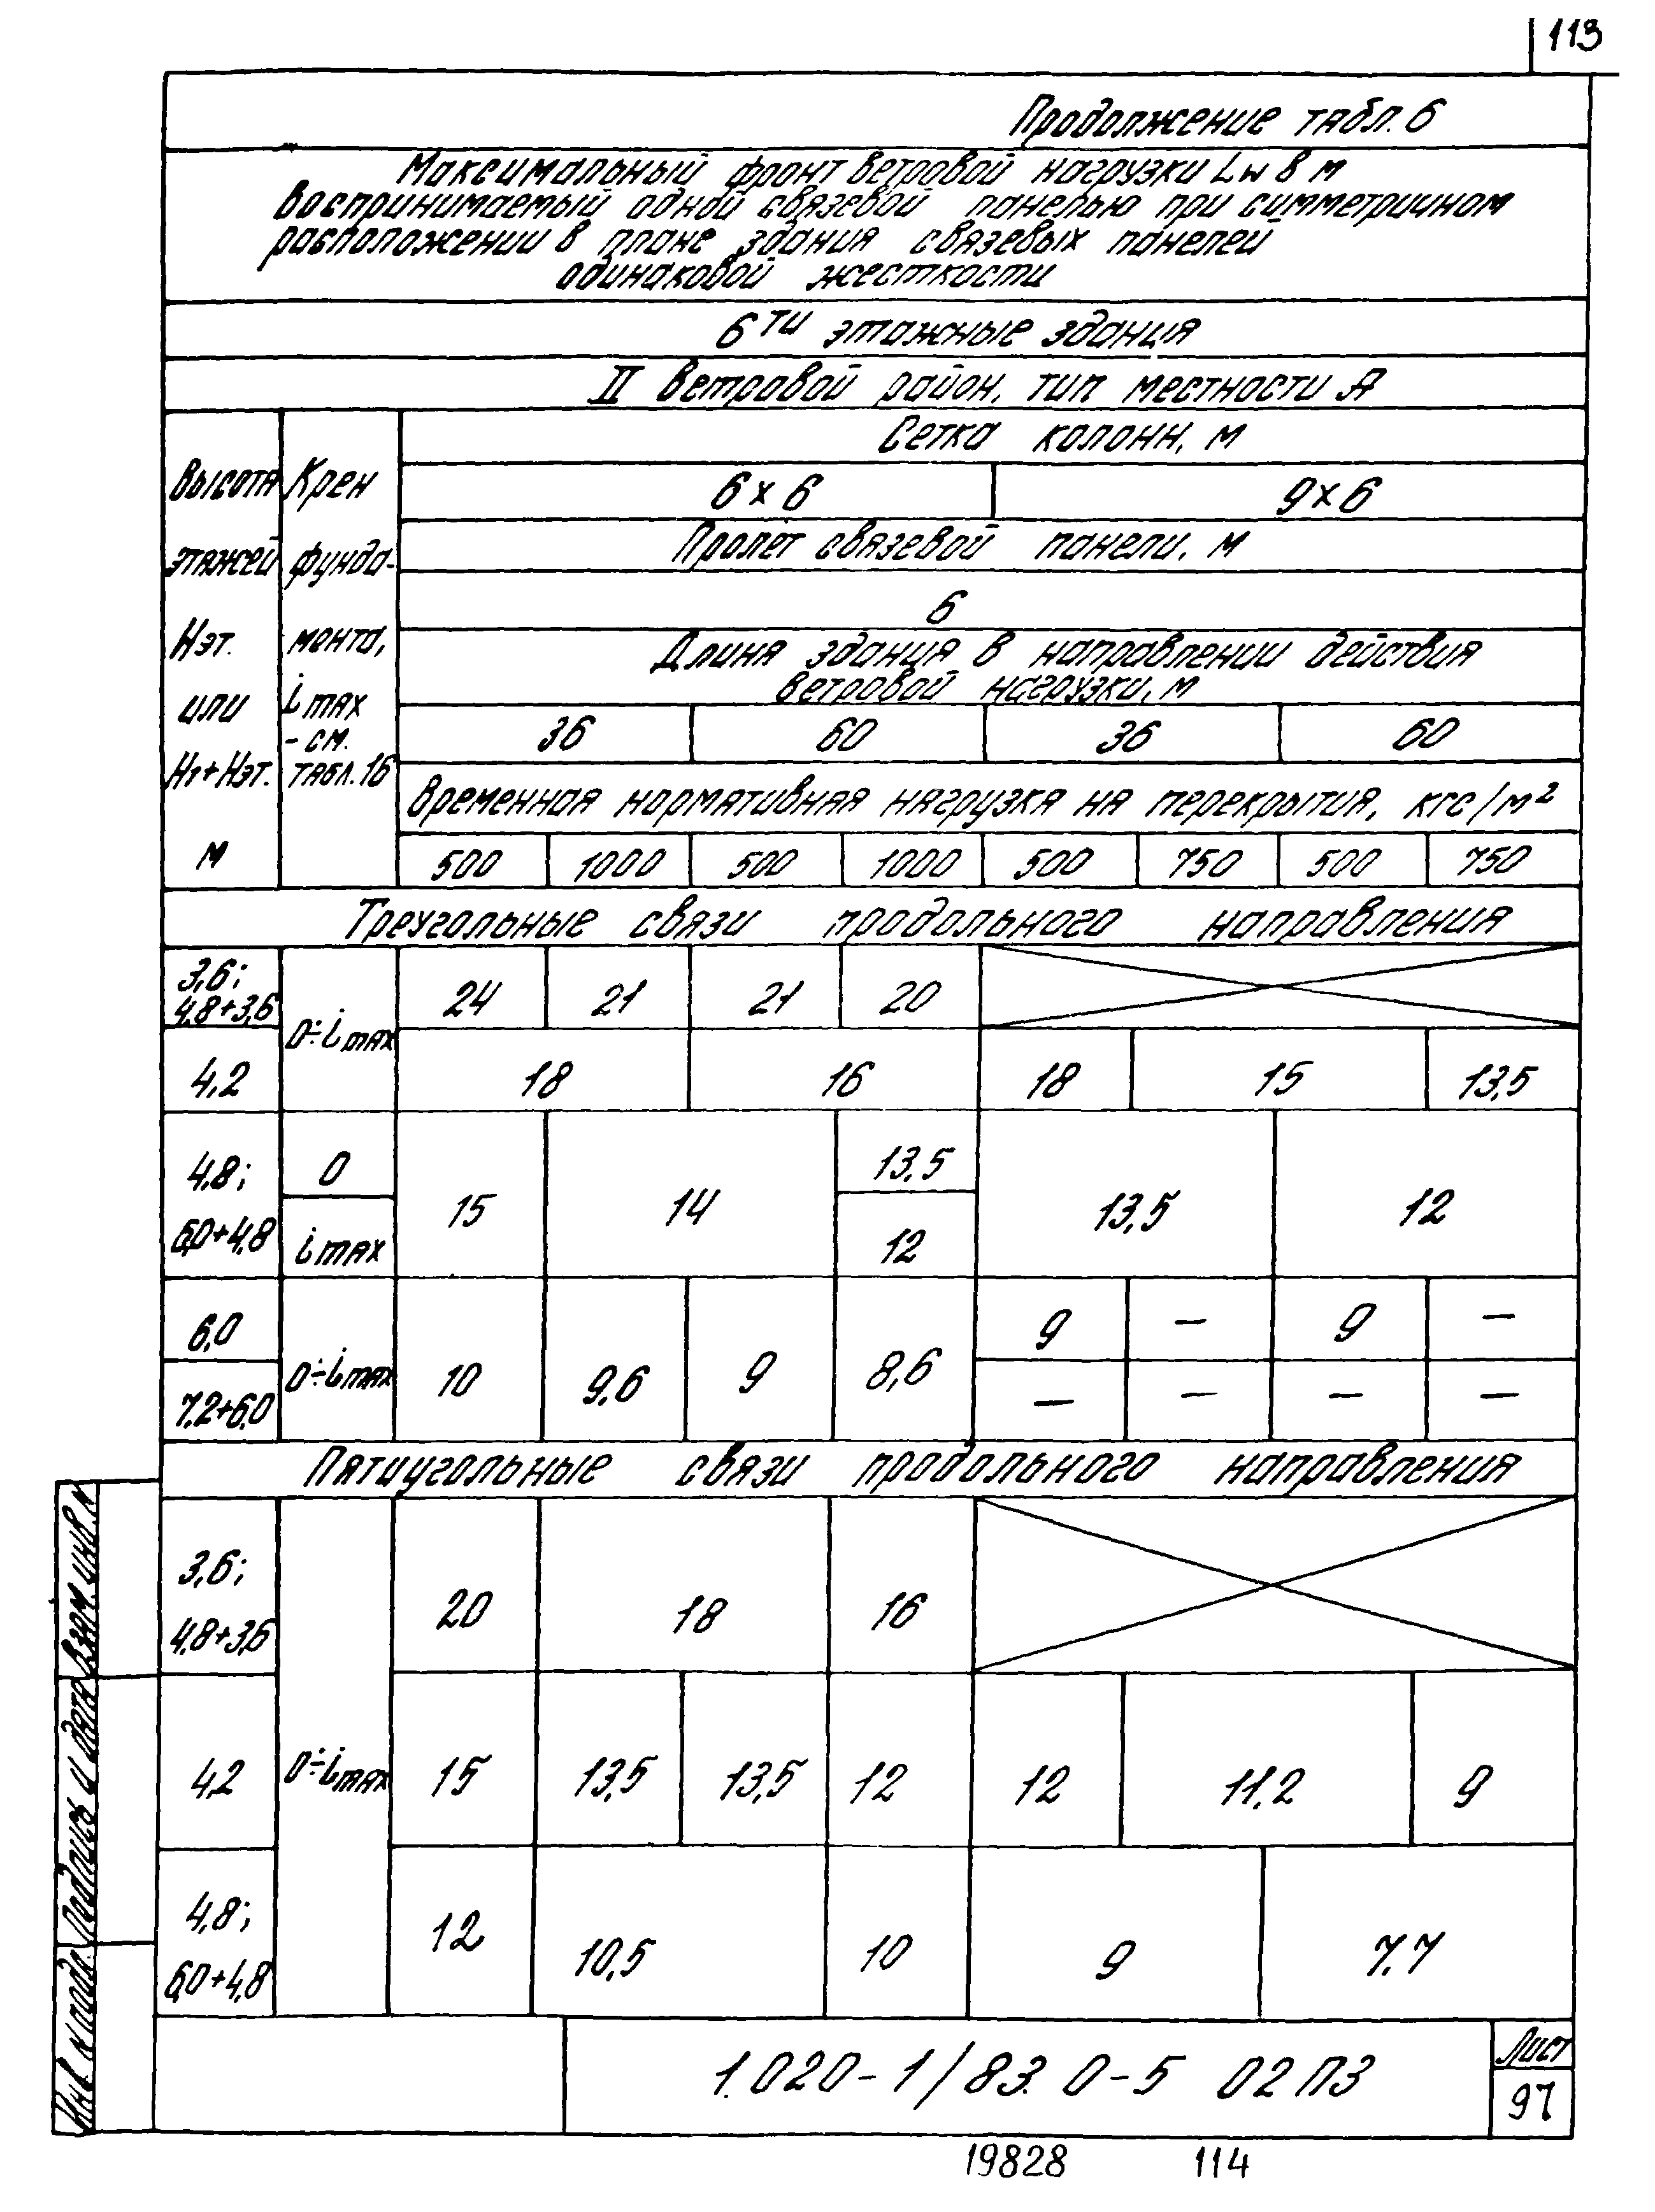 113
Продолжение табл. 6
Максимальный фронт ветровой нагрузки Lw в м
воспринимаемый одной связевой панелью при симметричном
расположении в плане здания связевых панелей
одинаковой жесткости
6ти этажные здания
II ветровой район, тип местности А
Сетка колонн, м
Высота Крен
6×6 9×6
Пролет связевой панели, м
этажей фунда-
6
Нэт. мента,
Длина здания в направлении действия
ветровой нагрузки, м
или imax
36 60 36 60
- см.
Н1+Нэт. табл. 16
Временная нормативная нагрузка на перекрытия, кгс/м²
м
500 1000 500 1000 500 750 500 750
Треугольные связи продольного направления
3,6;
4,8+3,6
0÷imax
24 21 21 20
4,2 18 16 18 15 13,5
4,8;
6,0+4,8
0
imax
15 14 13,5
12
13,5 12
6,0
7,2+6,0
0÷imax
10 9,6 9 8,6
9 — 9 —
— — — —
Пятиугольные связи продольного направления
3,6;
4,8+3,6
20 18 16
4,2 0÷imax 15 13,5 13,5 12 12 11,2 9
4,8;
6,0+4,8
12 10,5 10 9 7,7
Взам. инв. №
Подпись и дата
Инв. № подл.
1.020-1/83. 0-5 02 ПЗ
Лист
97
19828 114